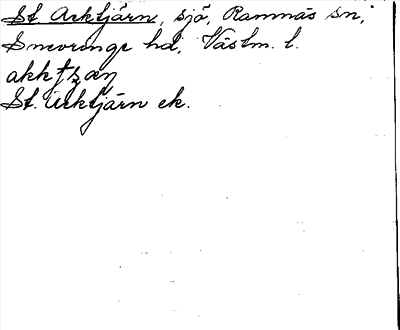 St Acktjärn, sjö, Ramnäs sn,
Snevringe hd, Västm. l.
St. Acktjärn ek.